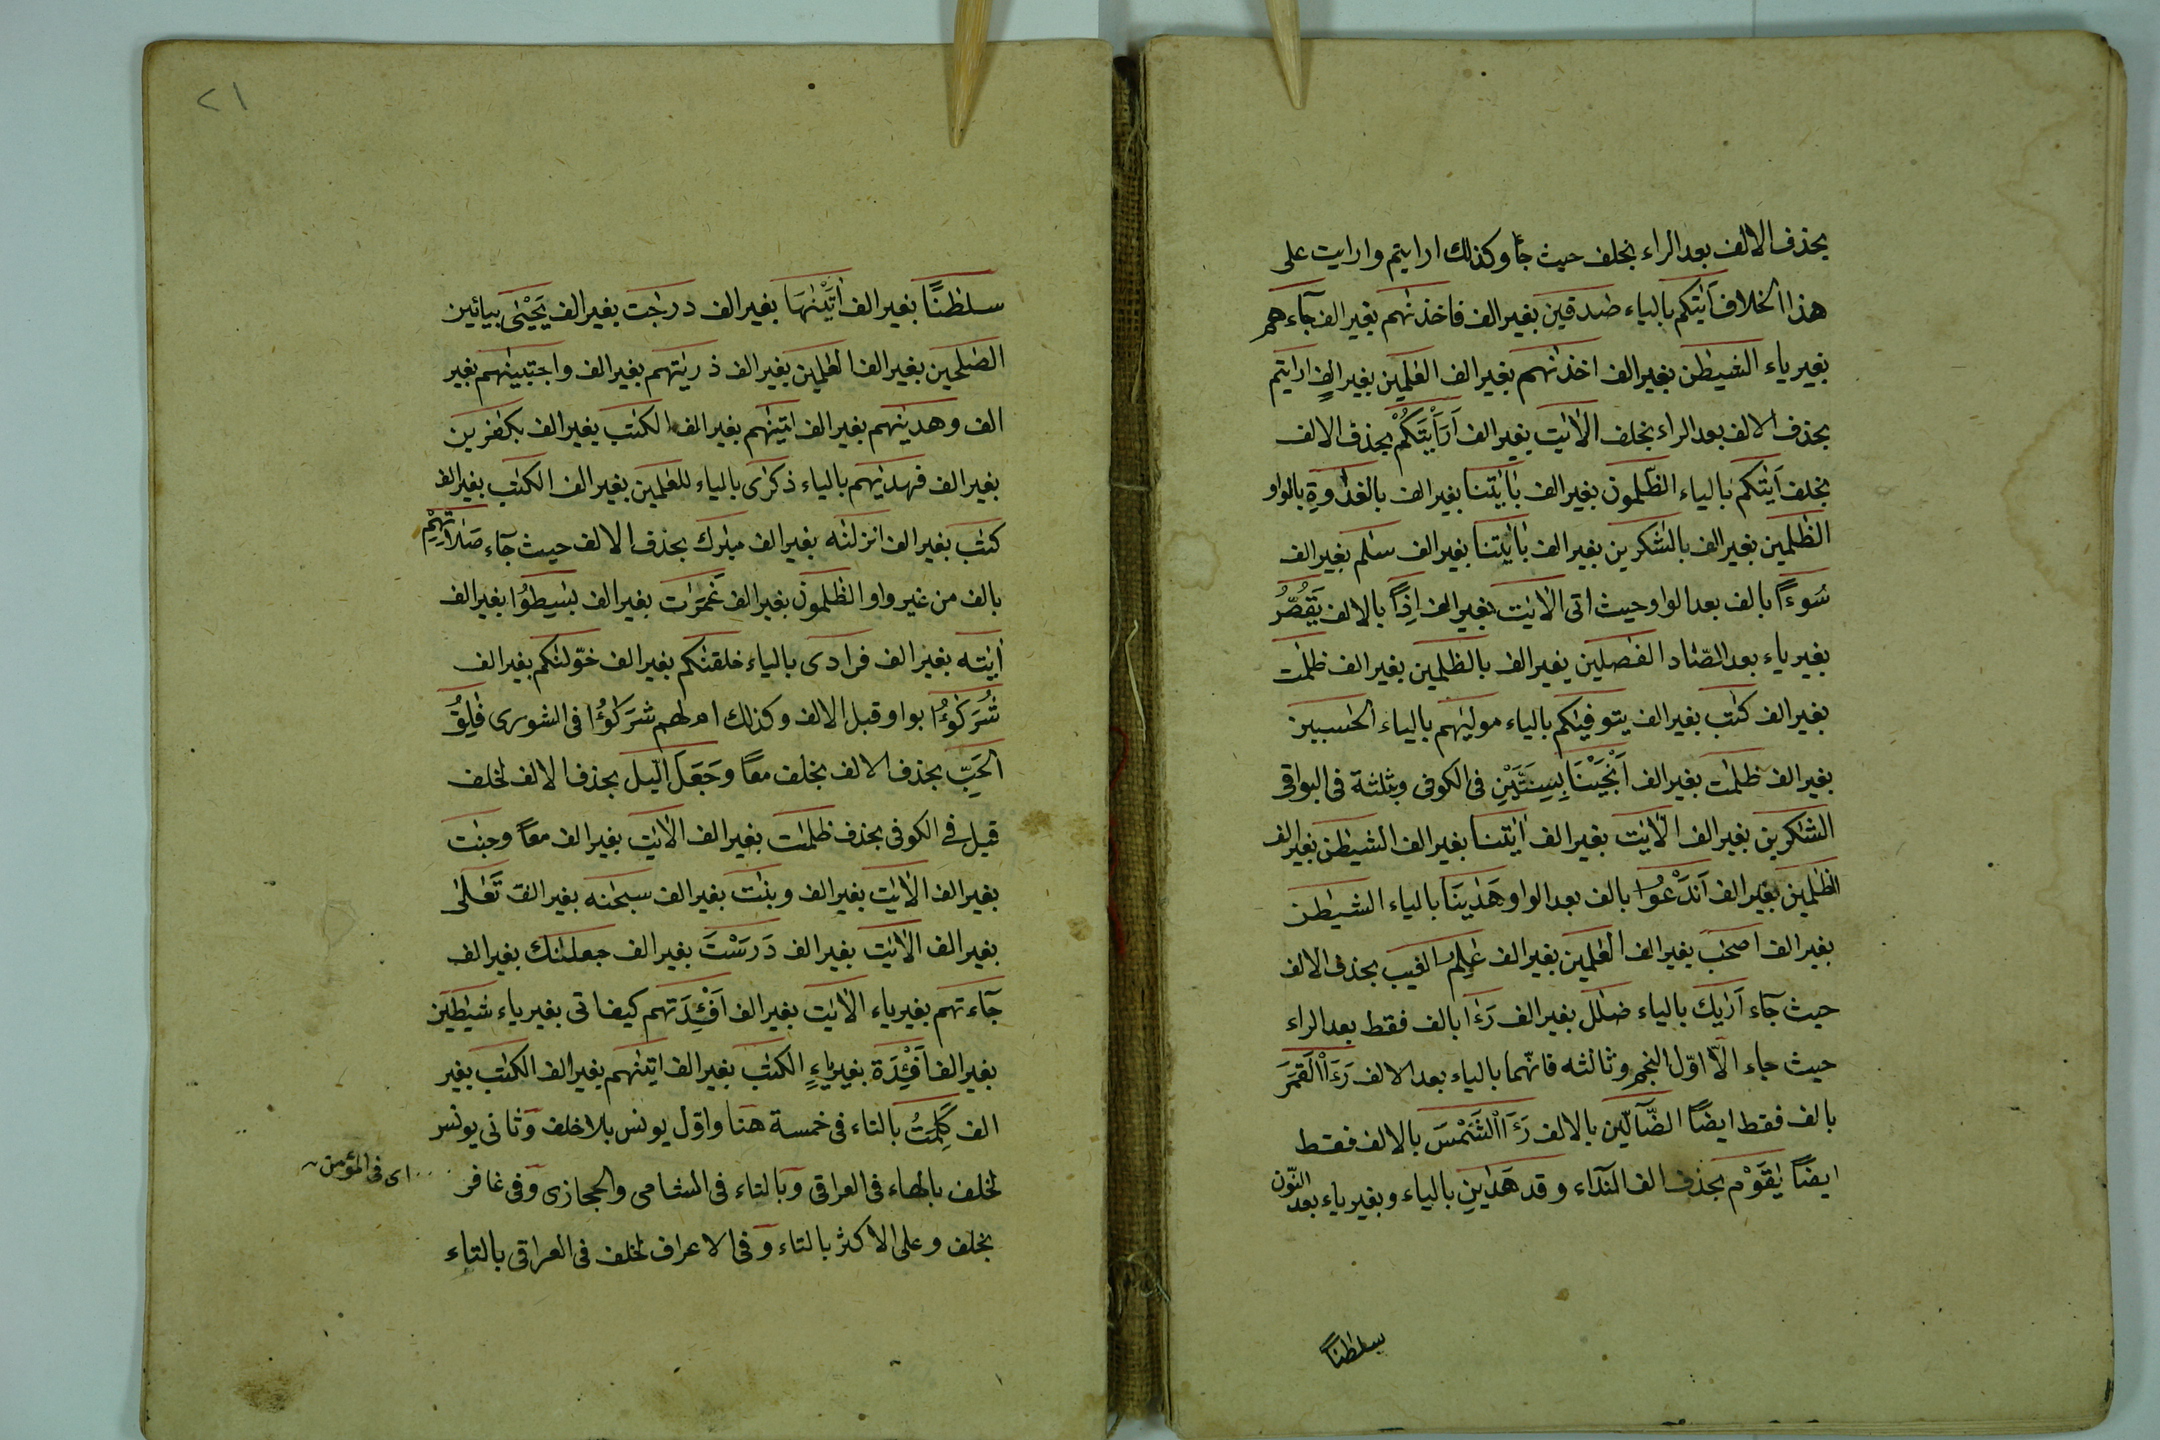 بحذف الالف بعد الراء بخلف حيث جاؤ كذلك ارايتم وارايت على
هذا الخلاف اٰتيكم بالياء صٰدقين بغير الف فاخذنٰهم بغير الف جآءهم
بغير ياء الشيطٰن بغير الف اخذنٰهم بغير الف العٰلمين بغير الف ارايتم
بحذف الالف بعد الراء بخلف الاٰيٰت بغير الف اَرَاَيْتَكُمْ بحذف الالف
بخلف اَتٰيكم بالياء الظّٰلمون بغير الف باٰيٰتنا بغير الف بالغدٰوةِ بالواو
الظٰلمين بغير الف بالشٰكرين بغير الف باٰيٰتنا بغير الف سلٰم بغير الف
سُوءًا بالف بعد الواو حيث اتى الاٰيٰت بغير الف اِذًا بالالف يَقُصُّ
بغير ياء بعد الصّاد الفٰصلين بغير الف بالظٰلمين بغير الف ظلمٰت
بغير الف كتٰب بغير الف يتوفيٰكم بالياء موليٰهم بالياء الحٰسبين
بغير الف ظلمٰت بغير الف اَنْجَيْنَا بِسِنَّتَيْنِ فى الكوفى وبثلثة فى البواقى
الشٰكرين بغير الف الاٰيٰت بغير الف اٰيٰتنا بغير الف الشيطٰن بغير الف
الظٰلمين بغير الف اَنَدْعُوا بالف بعد الواو هَدٰينَا بالياء الشيطٰن
بغير الف اصحٰب بغير الف العٰلمين بغير الف عٰلِم الغيب بحذف الالف
حيث جآء اَرٰيك بالياء ضلٰل بغير الف رَءَا بالف فقط بعد الراء
حيث جاء الّا اوّل النجم وثالثه فانّهما بالياء بعد الالف رَءَاْالْقَمَرَ
بالف فقط ايضًا الضَّآلّين بالالف رَءَاْالشَّمْسَ بالالف فقط
ايضًا يٰقَوْم بحذف الف النّدآء وقد هَدٰينِ بالياء وبغير ياء بعد النّون
سلطٰنًا
٢١
سلطٰنًا بغير الف اٰتَيْنٰهَا بغير الف درجٰت بغير الف يَحْيٰى بيائين
الصّٰلحين بغير الف العٰلمين بغير الف ذريٰتهم بغير الف واجتبينٰهم بغير
الف وهدينٰهم بغير الف اتينٰهم بغير الف الكتٰب بغير الف بكٰفرين
بغير الف فبهديٰهم بالياء ذكرٰى بالياء للعٰلمين بغير الف الكتٰب بغير الف
كتٰب بغير الف انزلنٰه بغير الف مبٰرك بحذف الالف حيث جآء صَلَاتِهِمْ
بالف من غير واو الظٰلمون بغير الف غَمَرٰت بغير الف بٰسِطُوا بغير الف
اٰيٰته بغير الف فرادى بالياء خلقنٰكم بغير الف خوّلنٰكم بغير الف
شُرَكٰؤُا بواو قبل الالف وكذلك ام لهم شرَكٰؤُا فى الشورى فٰلِقُ
الحَبِّ بحذف الالف بخلف معًا وجَعَلَ الّيل بحذف الالف لخلف
قيل فى الكوفى بحذف ظلمٰت بغير الف الاٰيٰت بغير الف معًا وجنٰت
بغير الف الاٰيٰت بغير الف وبنٰت بغير الف سبحٰنه بغير الف تَعٰلٰى
بغير الف الاٰيٰت بغير الف دَرَسْتَ بغير الف جعلنٰك بغير الف
جآءتهم بغير ياء الاٰيٰت بغير الف اَفْـِٔدَتهم كيف اتى بغير ياء شيٰطين
بغير الف اَفْـِٔدَة بغير ياءٍ الكتٰب بغير الف اتينٰهم بغير الف الكتٰب بغير
الف كَلِمَتُ بالتاء فى خمسة هنا واوّل يونس بلا خلف وثانى يونس
لخلف بالهاء فى العراقى وبالتاء فى الشامى والحجازى وفى غافر
اى فى المؤمن
بخلف وعلى الاكثر بالتاء وفى الاعراف لخلف فى العراقى بالتاء